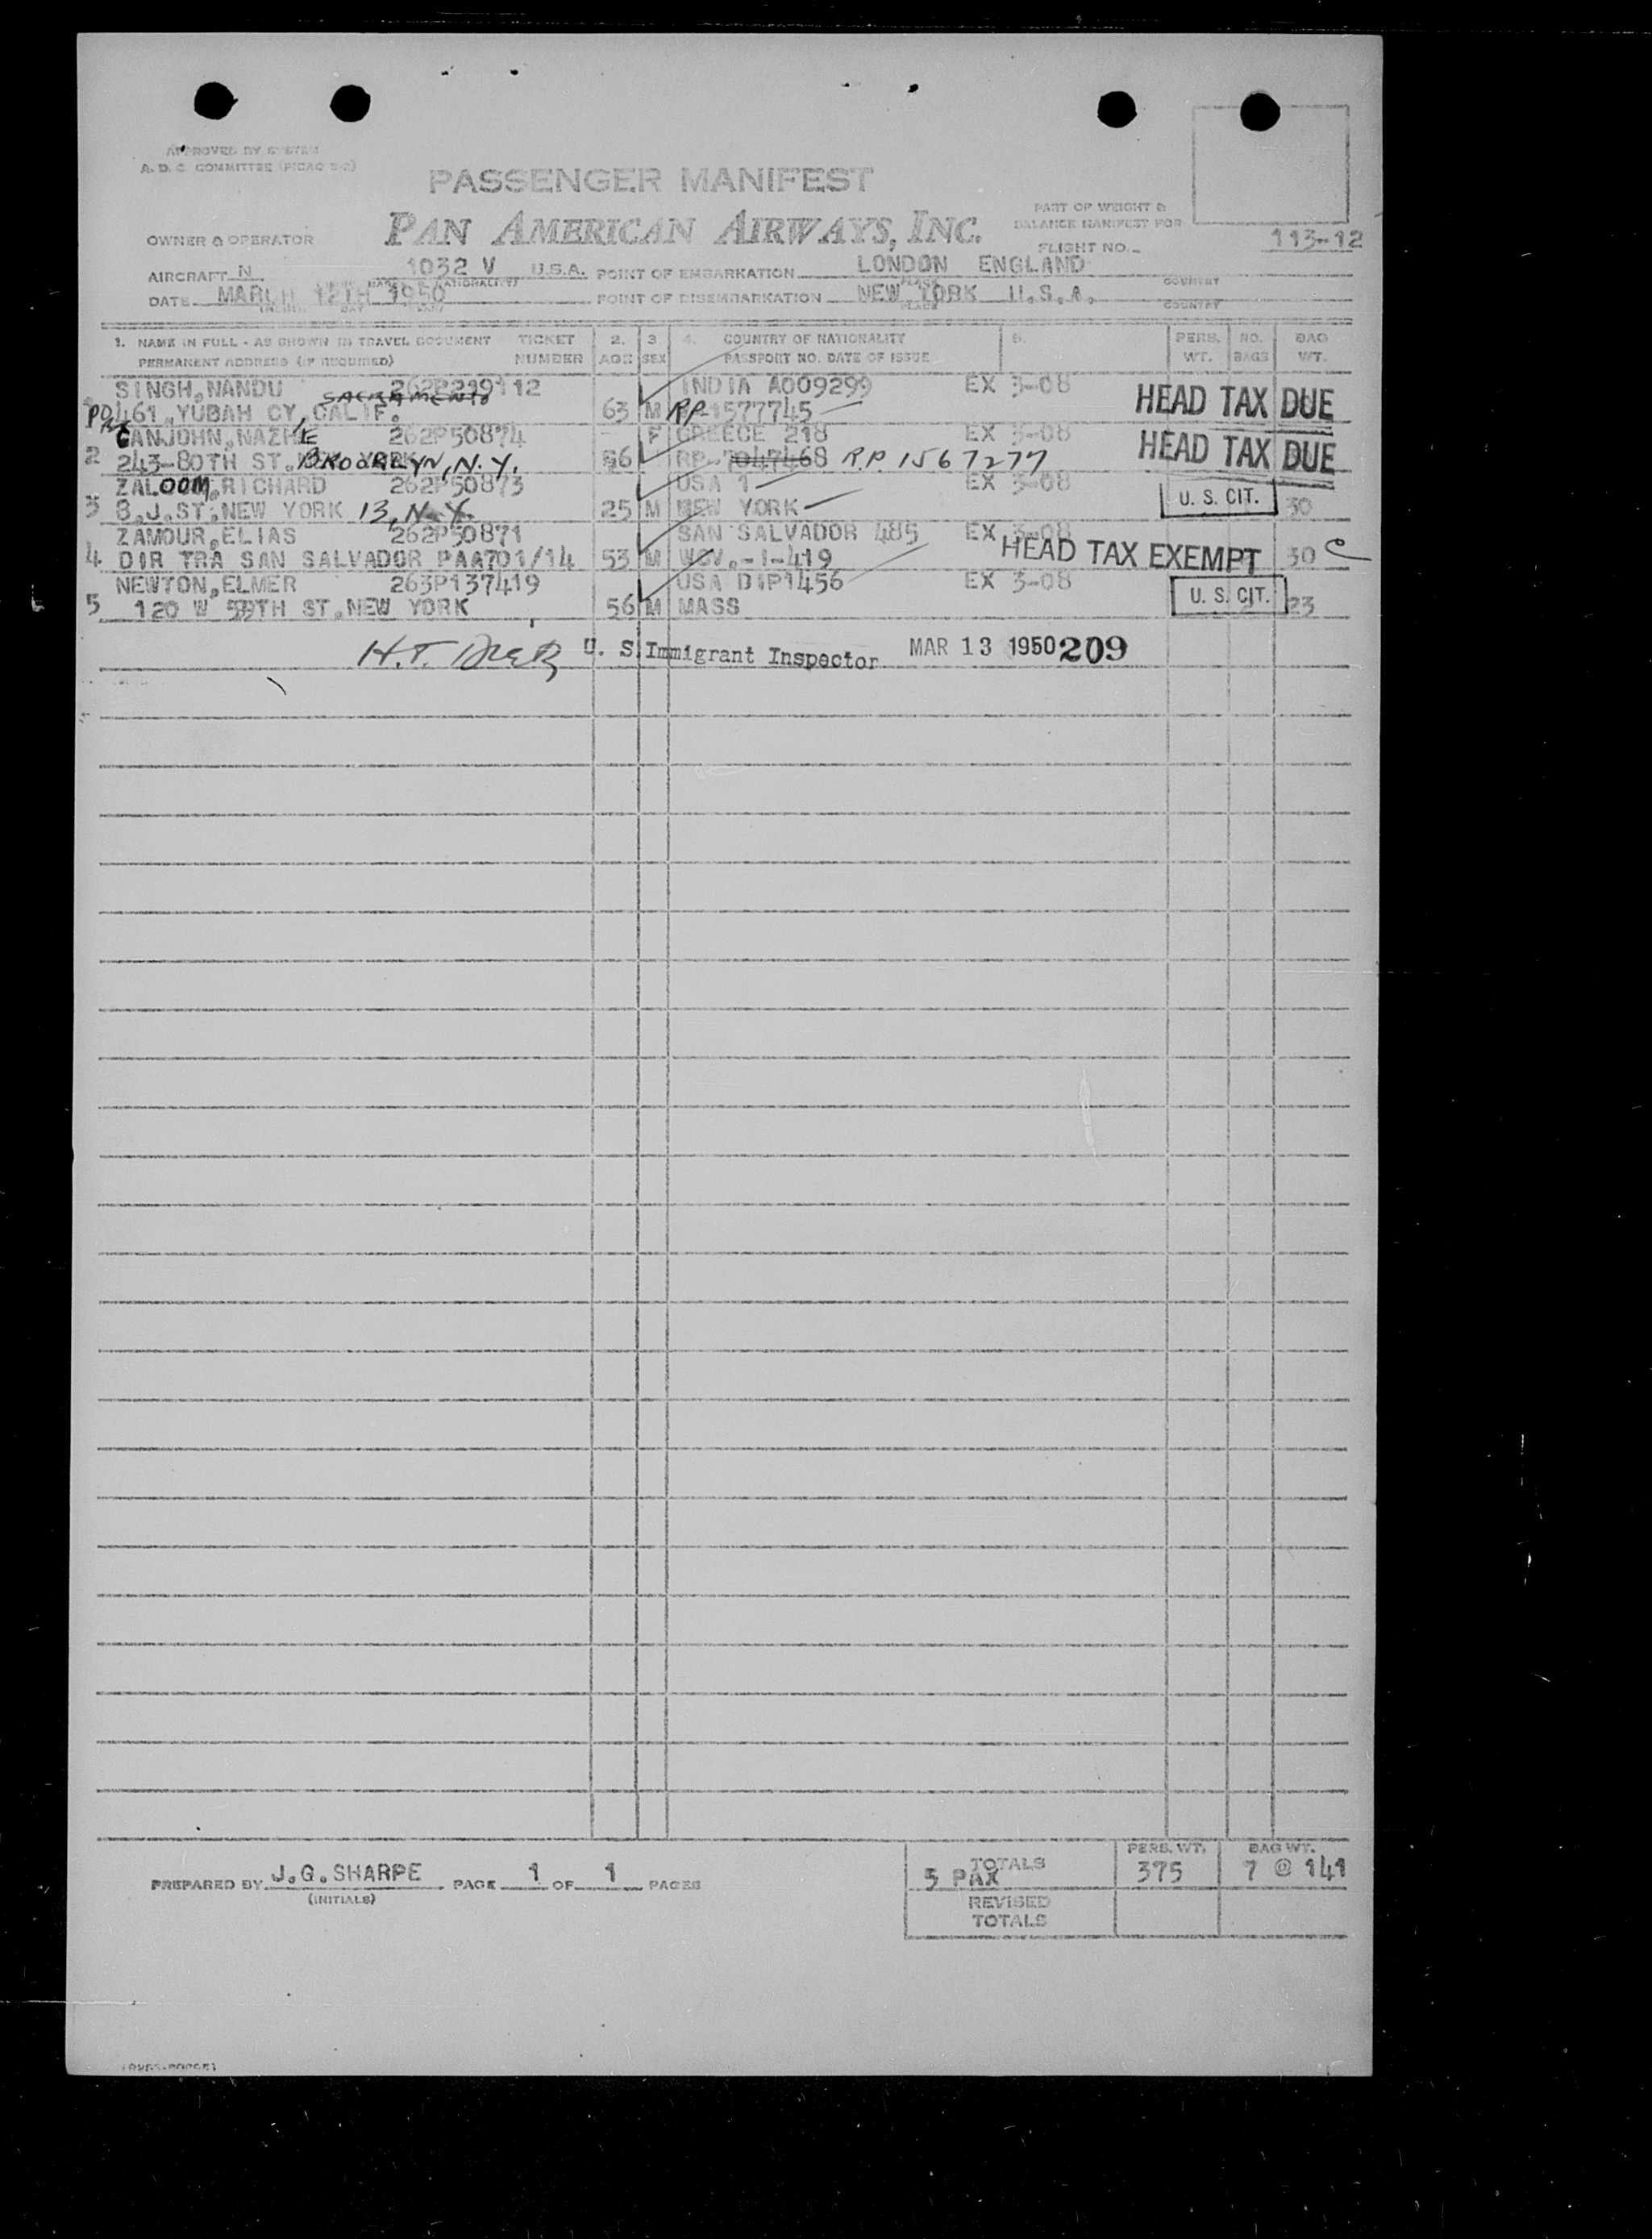 APPROVED BY SYSTEM
A. D. C. COMMITTEE (PICAO 2-2)
PASSENGER MANIFEST
PART OF WEIGHT &
BALANCE MANIFEST FOR
OWNER & OPERATOR PAN AMERICAN AIRWAYS, INC. FLIGHT NO. 113-12
AIRCRAFT N 1032 V U.S.A. POINT OF EMBARKATION LONDON ENGLAND
PLACE COUNTRY
DATE MARCH 12TH 1950 POINT OF DISEMBARKATION NEW YORK U.S.A.
DAY PLACE COUNTRY
1. NAME IN FULL - AS SHOWN IN TRAVEL DOCUMENT TICKET 2. 3. 4. COUNTRY OF NATIONALITY 5. PERS. NO. BAG
PERMANENT ADDRESS (IF REQUIRED) NUMBER AGE SEX PASSPORT NO. DATE OF ISSUE WT. BAGS WT.
SINGH,NANDU 262P219112 INDIA A009299 EX 3-08
SACRAMENTO HEAD TAX DUE
461,YUBAH CY,CALIF. 63 M RP 1577745
CANJOHN,NAZHIE 262P50874 F GREECE 218 EX 3-08
2 243-80TH ST. BROOKLYN, N.Y. 56 RP-7047468 R.P. 1567277 HEAD TAX DUE
ZALOOM,RICHARD 262P50873 USA 1 EX 3-08
3 8.J.ST.NEW YORK 13, N.Y. 25 M NEW YORK U. S. CIT. 30
ZAMOUR,ELIAS 262P50871 SAN SALVADOR 485 EX 3-08
4 DIR TRA SAN SALVADOR PAA701/14 53 M -1-419 HEAD TAX EXEMPT 30
NEWTON,ELMER 263P137419 USA DIP1456 EX 3-08
5 120 W 59TH ST.NEW YORK 56 M MASS U. S. CIT. 23
U. S. Immigrant Inspector MAR 13 1950 209
PREPARED BY J.G.SHARPE PAGE 1 OF 1 PAGES
(INITIALS)
PERS. WT. BAG WT.
TOTALS
5 PAX 375 7 @ 141
REVISED
TOTALS